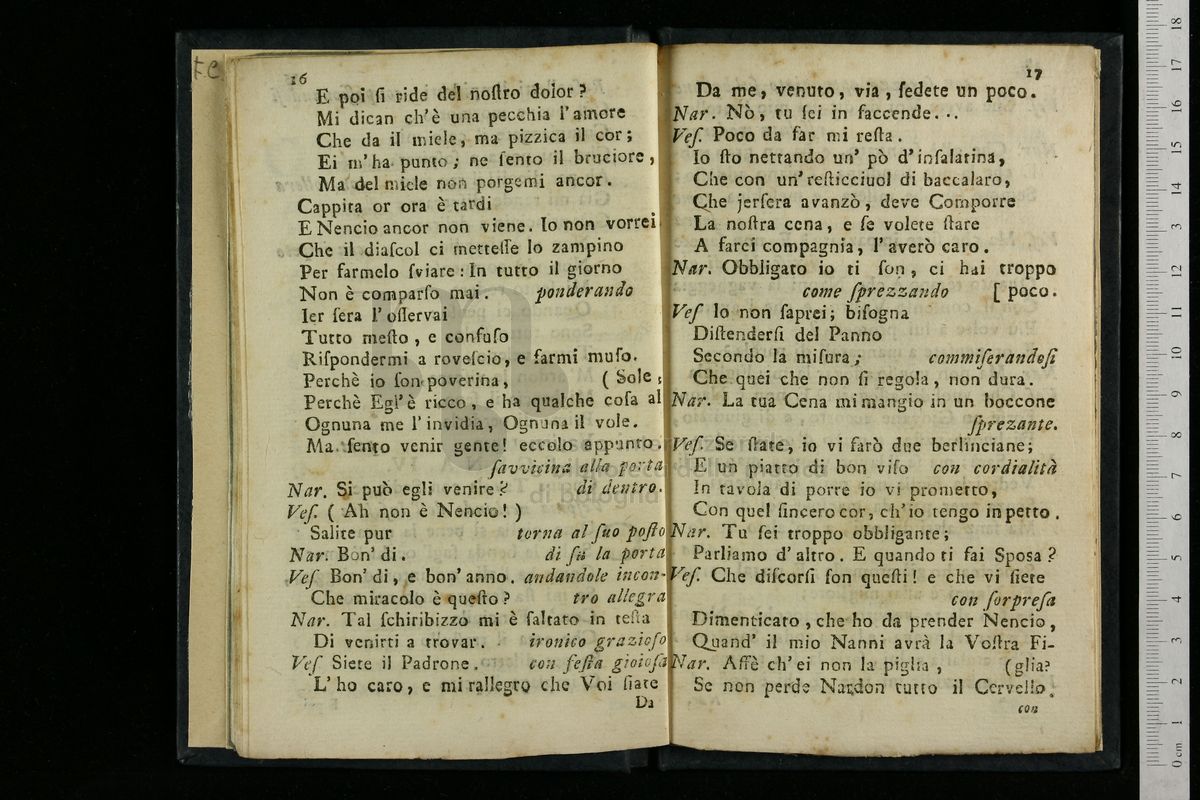 16
E poi ſi ride del noſtro dolor?
Mi dican ch'è una pecchia l'amore
Che da il miele, ma pizzica il cor;
Ei m'ha punto; ne ſento il bruciore,
Ma del miele non porgemi ancor.
Cappita or ora è tardi
E Nencio ancor non viene. Io non vorrei
Che il diaſcol ci metteſſe lo zampino
Per farmelo ſviare: In tutto il giorno
Non è comparſo mai. ponderando
Ier ſera l'oſſervai
Tutto meſto, e confuſo
Riſpondermi a roveſcio, e farmi muſo.
Perchè io ſon poverina, ( Sole,
Perchè Egl'è ricco, e ha qualche coſa al
Ognuna me l'invidia, Ognuna il vole.
Ma ſento venir gente! eccolo appunto.
ſavvicina alla porta
Nar. Si può egli venire? di dentro.
Veſ. ( Ah non è Nencio! )
Salite pur torna al ſuo poſto
Nar. Bon' di. di ſu la porta
Veſ Bon' di, e bon' anno. andandole incon-
Che miracolo è queſto? tro allegra
Nar. Tal ſchiribizzo mi è ſaltato in teſta
Di venirti a trovar. ironico grazioſo
Veſ Siete il Padrone. con feſta gioioſa
L'ho caro, e mi rallegro che Voi ſiate
Da
17
Da me, venuto, via, ſedete un poco.
Nar. Nò, tu ſei in faccende...
Veſ. Poco da far mi reſta.
Io ſto nettando un' pò d'inſalatina,
Che con un'reſticciuol di baccalaro,
Che jerſera avanzò, deve Comporre
La noſtra cena, e ſe volete ſtare
A farci compagnia, l'averò caro.
Nar. Obbligato io ti ſon, ci hai troppo
come ſprezzando [ poco.
Veſ Io non ſaprei; biſogna
Diſtenderſi del Panno
Secondo la miſura; commiſerandoſi
Che quei che non ſi regola, non dura.
Nar. La tua Cena mi mangio in un boccone
ſprezante.
Veſ. Se ſtate, io vi farò due berlinciane;
E un piatto di bon viſo con cordialità
In tavola di porre io vi prometto,
Con quel ſincero cor, ch'io tengo in petto.
Nar. Tu ſei troppo obbligante;
Parliamo d'altro. E quando ti fai Sposa?
Veſ. Che diſcorſi ſon queſti! e che vi ſiete
con ſorpreſa
Dimenticato, che ho da prender Nencio,
Quand' il mio Nanni avrà la Voſtra Fi-
Nar. Affè ch'ei non la piglia, (glia?
Se non perde Nardon tutto il Cervello.
con